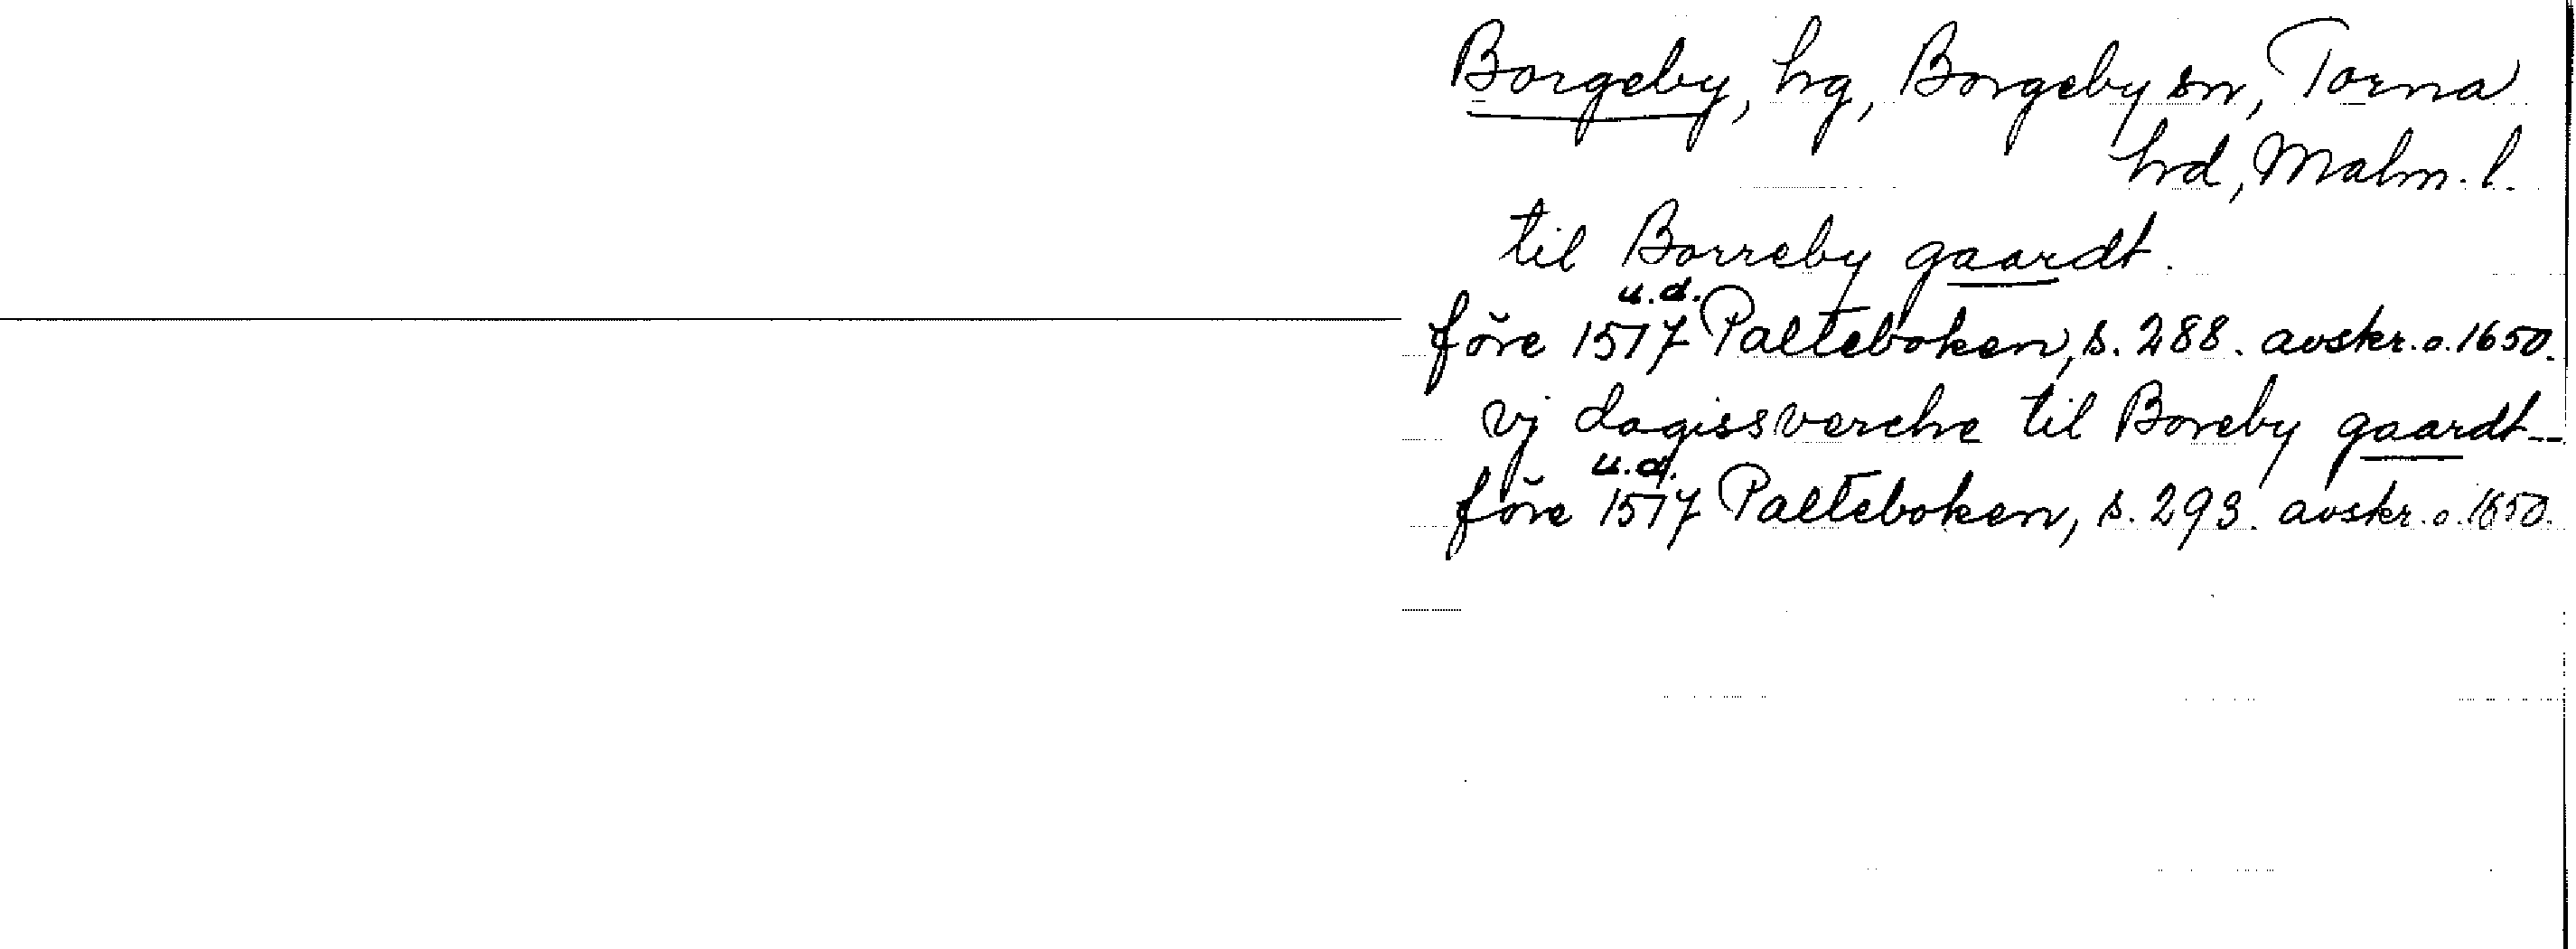 Borgeby, hg, Borgeby sn, Torna
hrd, Malm. l.
til Borreby gaardt.
u.d.
före 1517 Palteboken, s. 288. avskr. o. 1650.
vj dagissverche til Boreby gaardt--
u.d.
före 1517 Palteboken, s. 293. avskr. o. 1650.